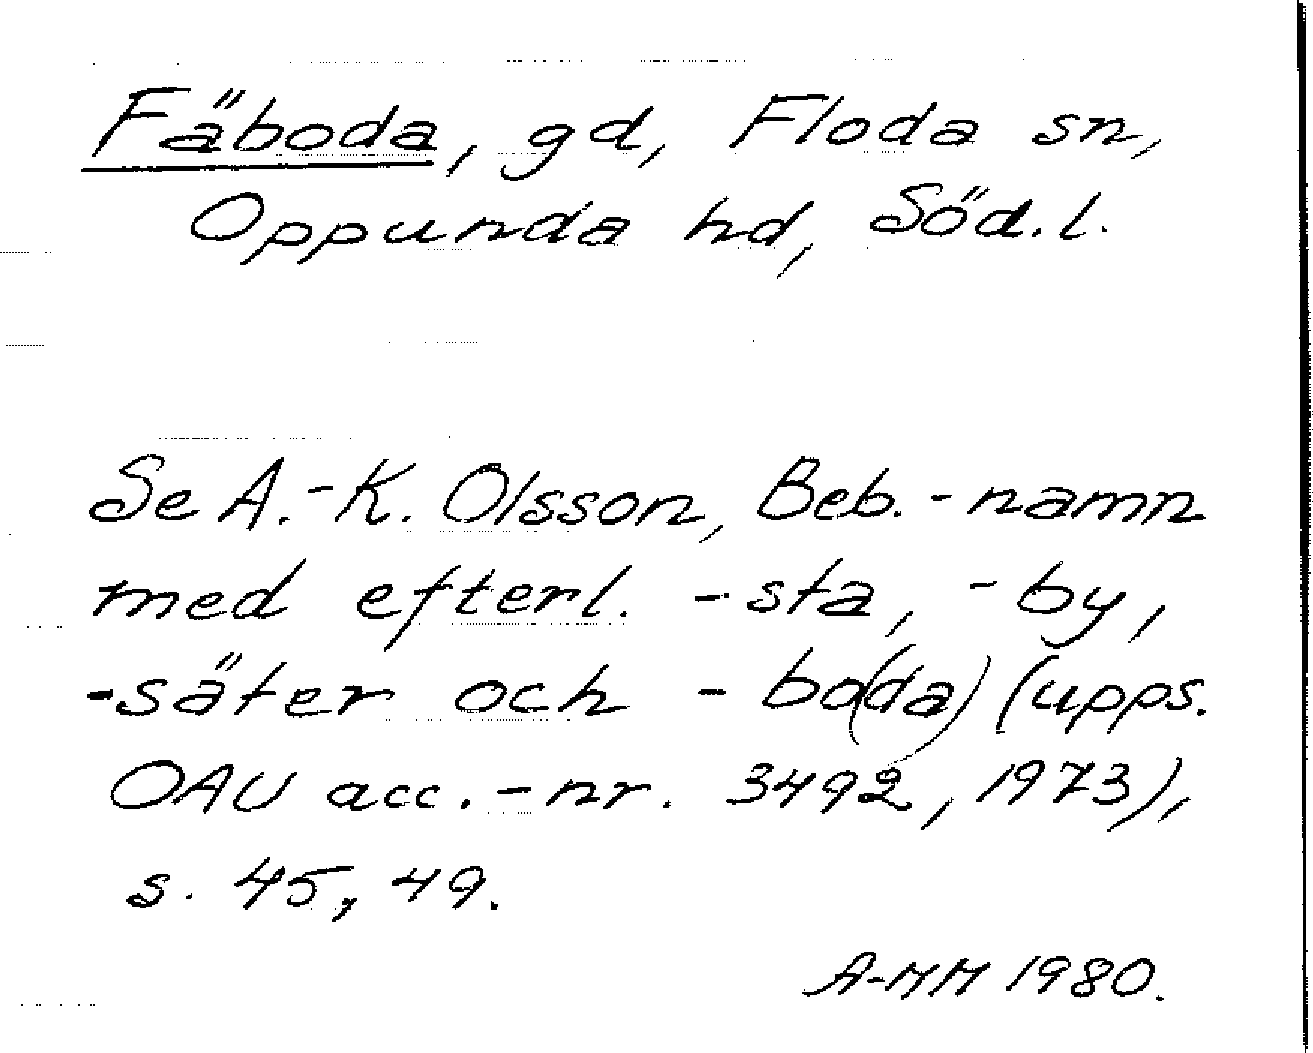 Fäboda, gd, Floda sn,
Oppunda hd, Söd.l.
Se A.-K. Olsson, Beb.-namn
med efterl. -sta, -by,
-säter och -bo(da) (upps.
OAU acc.-nr. 3492, 1973),
s. 45, 49.
A-MM 1980.